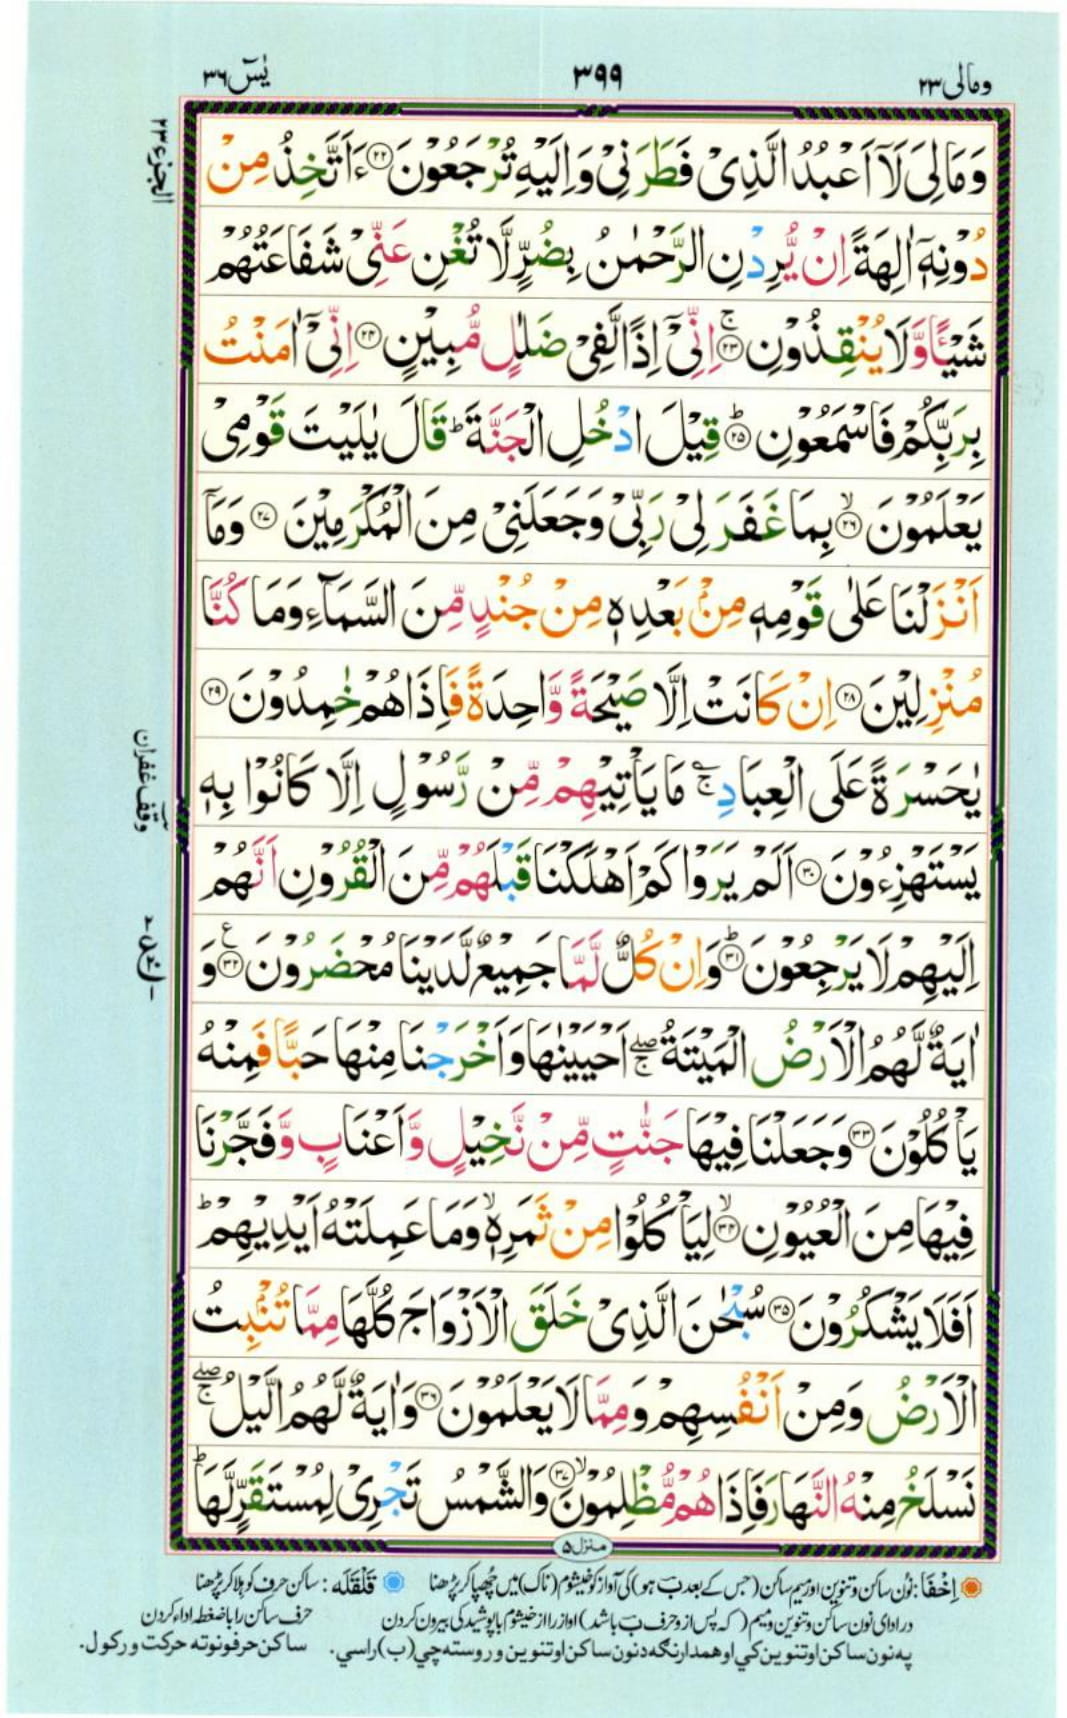 ومالی ۲۳
۳۹۹
یٰسٓ ۳۶
الجزء ۲۳
وَمَالِیَ لَاۤ اَعْبُدُ الَّذِیْ فَطَرَنِیْ وَاِلَیْهِ تُرْجَعُوْنَ ﴿۲۲﴾ ءَاَتَّخِذُ مِنْ
دُوْنِهٖۤ اٰلِهَةً اِنْ یُّرِدْنِ الرَّحْمٰنُ بِضُرٍّ لَّا تُغْنِ عَنِّیْ شَفَاعَتُهُمْ
شَیْـًٔا وَّلَا یُنْقِذُوْنِ ۚ﴿۲۳﴾ اِنِّیْۤ اِذًا لَّفِیْ ضَلٰلٍ مُّبِیْنٍ ﴿۲۴﴾ اِنِّیْۤ اٰمَنْتُ
بِرَبِّكُمْ فَاسْمَعُوْنِ ؕ﴿۲۵﴾ قِیْلَ ادْخُلِ الْجَنَّةَ ؕ قَالَ یٰلَیْتَ قَوْمِیْ
یَعْلَمُوْنَ ۙ﴿۲۶﴾ بِمَا غَفَرَ لِیْ رَبِّیْ وَجَعَلَنِیْ مِنَ الْمُكْرَمِیْنَ ﴿۲۷﴾ وَمَاۤ
اَنْزَلْنَا عَلٰی قَوْمِهٖ مِنْۢ بَعْدِهٖ مِنْ جُنْدٍ مِّنَ السَّمَآءِ وَمَا كُنَّا
مُنْزِلِیْنَ ﴿۲۸﴾ اِنْ كَانَتْ اِلَّا صَیْحَةً وَّاحِدَةً فَاِذَا هُمْ خٰمِدُوْنَ ﴿۲۹﴾
یٰحَسْرَةً عَلَی الْعِبَادِ ۚؔ مَا یَاْتِیْهِمْ مِّنْ رَّسُوْلٍ اِلَّا كَانُوْا بِهٖ
وقف غفران
یَسْتَهْزِءُوْنَ ﴿۳۰﴾ اَلَمْ یَرَوْا كَمْ اَهْلَكْنَا قَبْلَهُمْ مِّنَ الْقُرُوْنِ اَنَّهُمْ
اِلَیْهِمْ لَا یَرْجِعُوْنَ ؕ﴿۳۱﴾ وَاِنْ كُلٌّ لَّمَّا جَمِیْعٌ لَّدَیْنَا مُحْضَرُوْنَ ﴿۳۲﴾ۧ وَ
اٰیَةٌ لَّهُمُ الْاَرْضُ الْمَیْتَةُ ۖۚ اَحْیَیْنٰهَا وَاَخْرَجْنَا مِنْهَا حَبًّا فَمِنْهُ
یَاْكُلُوْنَ ﴿۳۳﴾ وَجَعَلْنَا فِیْهَا جَنّٰتٍ مِّنْ نَّخِیْلٍ وَّاَعْنَابٍ وَّفَجَّرْنَا
فِیْهَا مِنَ الْعُیُوْنِ ۙ﴿۳۴﴾ لِیَاْكُلُوْا مِنْ ثَمَرِهٖ ۙ وَمَا عَمِلَتْهُ اَیْدِیْهِمْ ؕ
اَفَلَا یَشْكُرُوْنَ ﴿۳۵﴾ سُبْحٰنَ الَّذِیْ خَلَقَ الْاَزْوَاجَ كُلَّهَا مِمَّا تُنْۢبِتُ
الْاَرْضُ وَمِنْ اَنْفُسِهِمْ وَمِمَّا لَا یَعْلَمُوْنَ ﴿۳۶﴾ وَاٰیَةٌ لَّهُمُ الَّیْلُ ۖۚ
نَسْلَخُ مِنْهُ النَّهَارَ فَاِذَا هُمْ مُّظْلِمُوْنَ ۙ﴿۳۷﴾ وَالشَّمْسُ تَجْرِیْ لِمُسْتَقَرٍّ لَّهَا ؕ
منزل ۵
اِخْفَا : نُون ساکن و تنوین اور میم ساکن (جس کے بعد بَ ہو) کی آواز کو خیشوم (ناک) میں چُھپا کر پڑھنا قَلْقَلَه : ساکن حرف کو ہلا کر پڑھنا
در ادای نون ساکن و تنوین و میم (که پس از و حرف بَ باشد) اواز را از خیشوم با پوشیدگی بیرون کردن حرف ساکن را با ضغطه اداء کردن
په نون ساکن او تنوین کي او همدارنګه د نون ساکن او تنوین وروسته چي (ب) راسي. ساکن حرفونو ته حرکت ورکول.